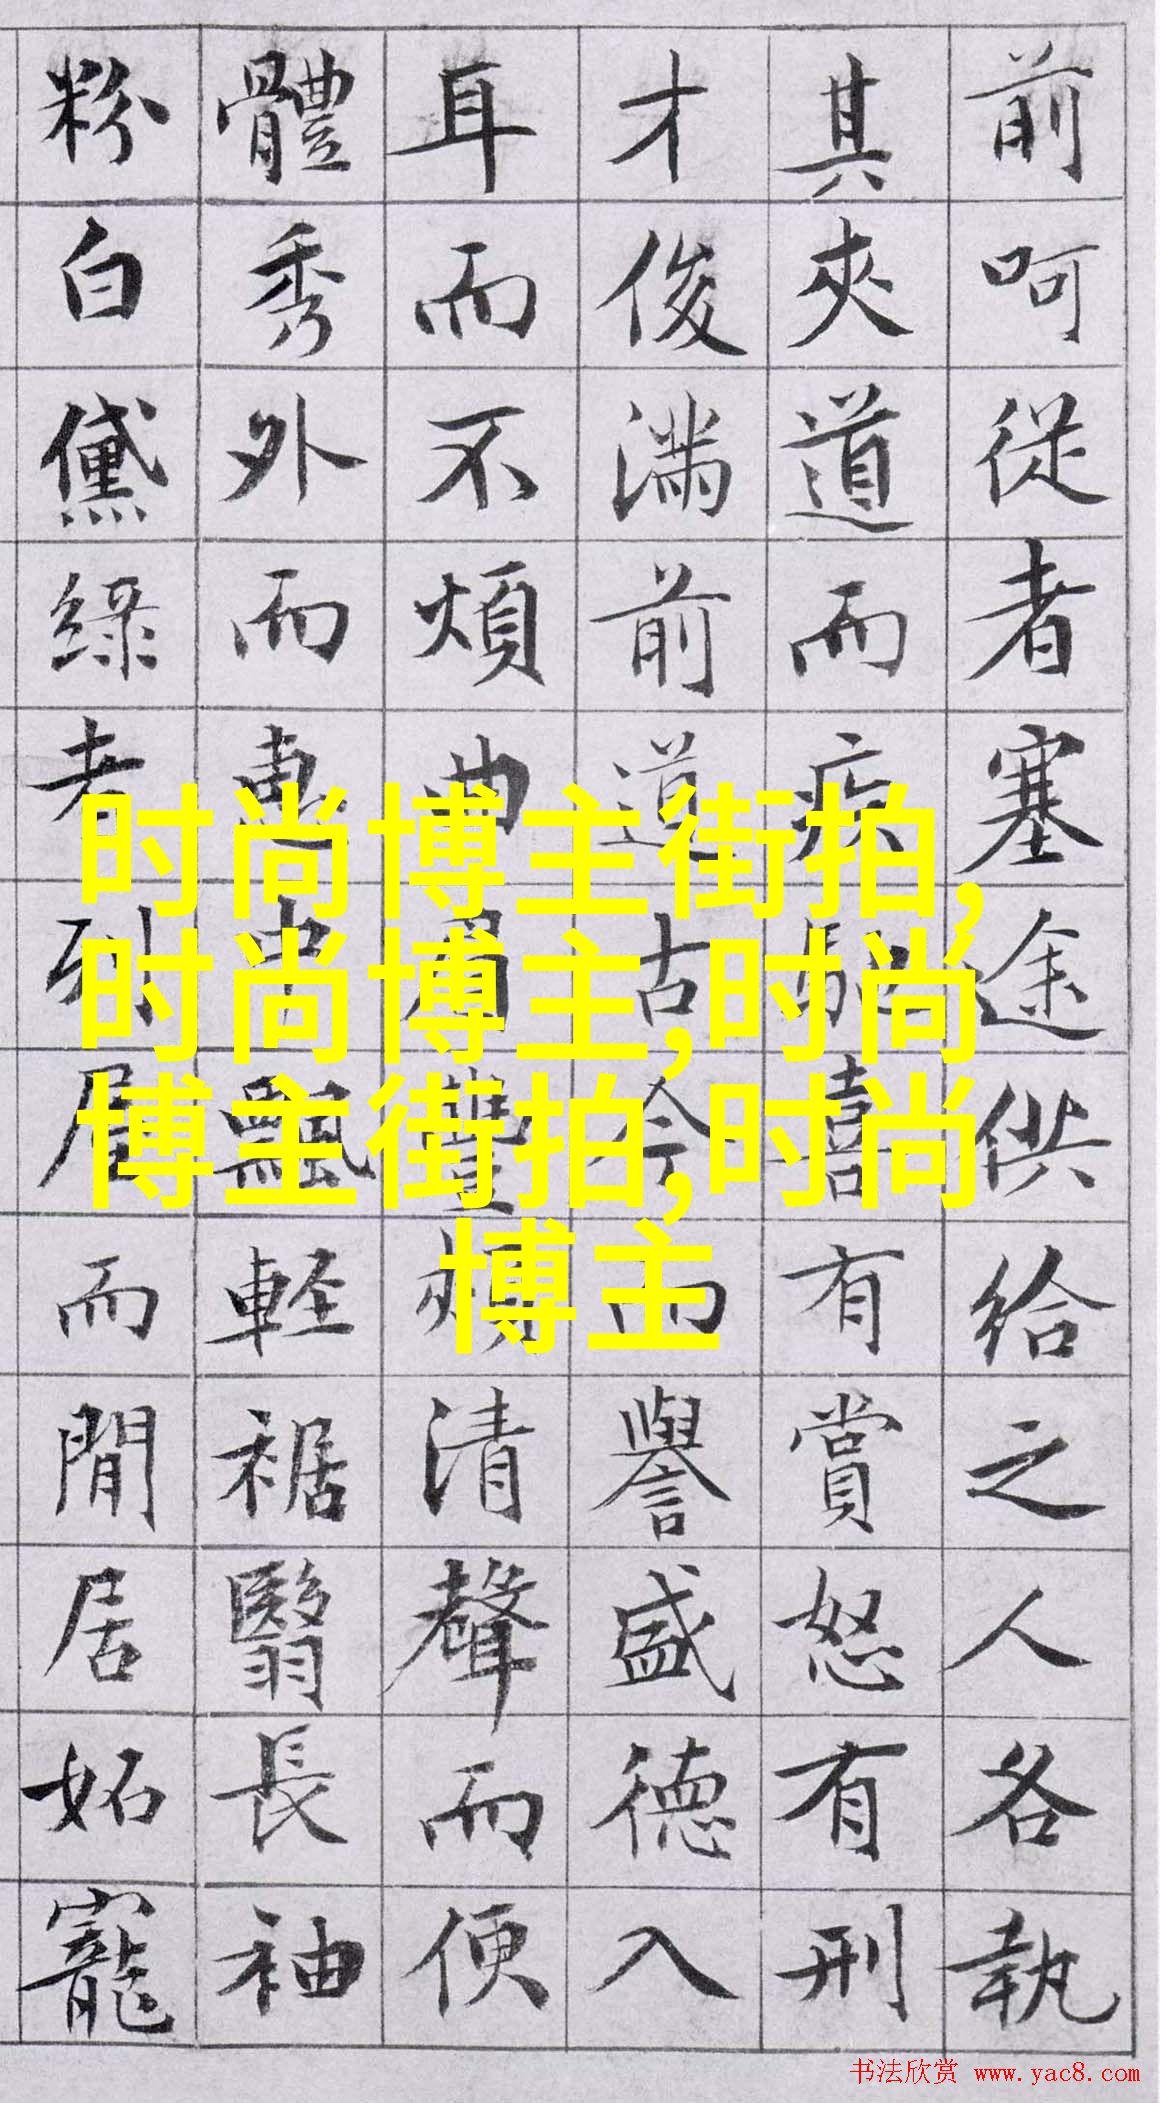 前呵從者塞途供给之人各執
其夾道而疾馳喜有賞怒有刑
才俊满前道古今而譽盛德入
耳而不煩曲眉豐頰清聲而便
體秀外而惠中飄輕裾翳長袖
粉白黛綠者列屋而閒居妬寵
时尚博主街拍,
时尚博主,时尚
博主街拍,时尚
博主
书法欣赏 www.yac8.com